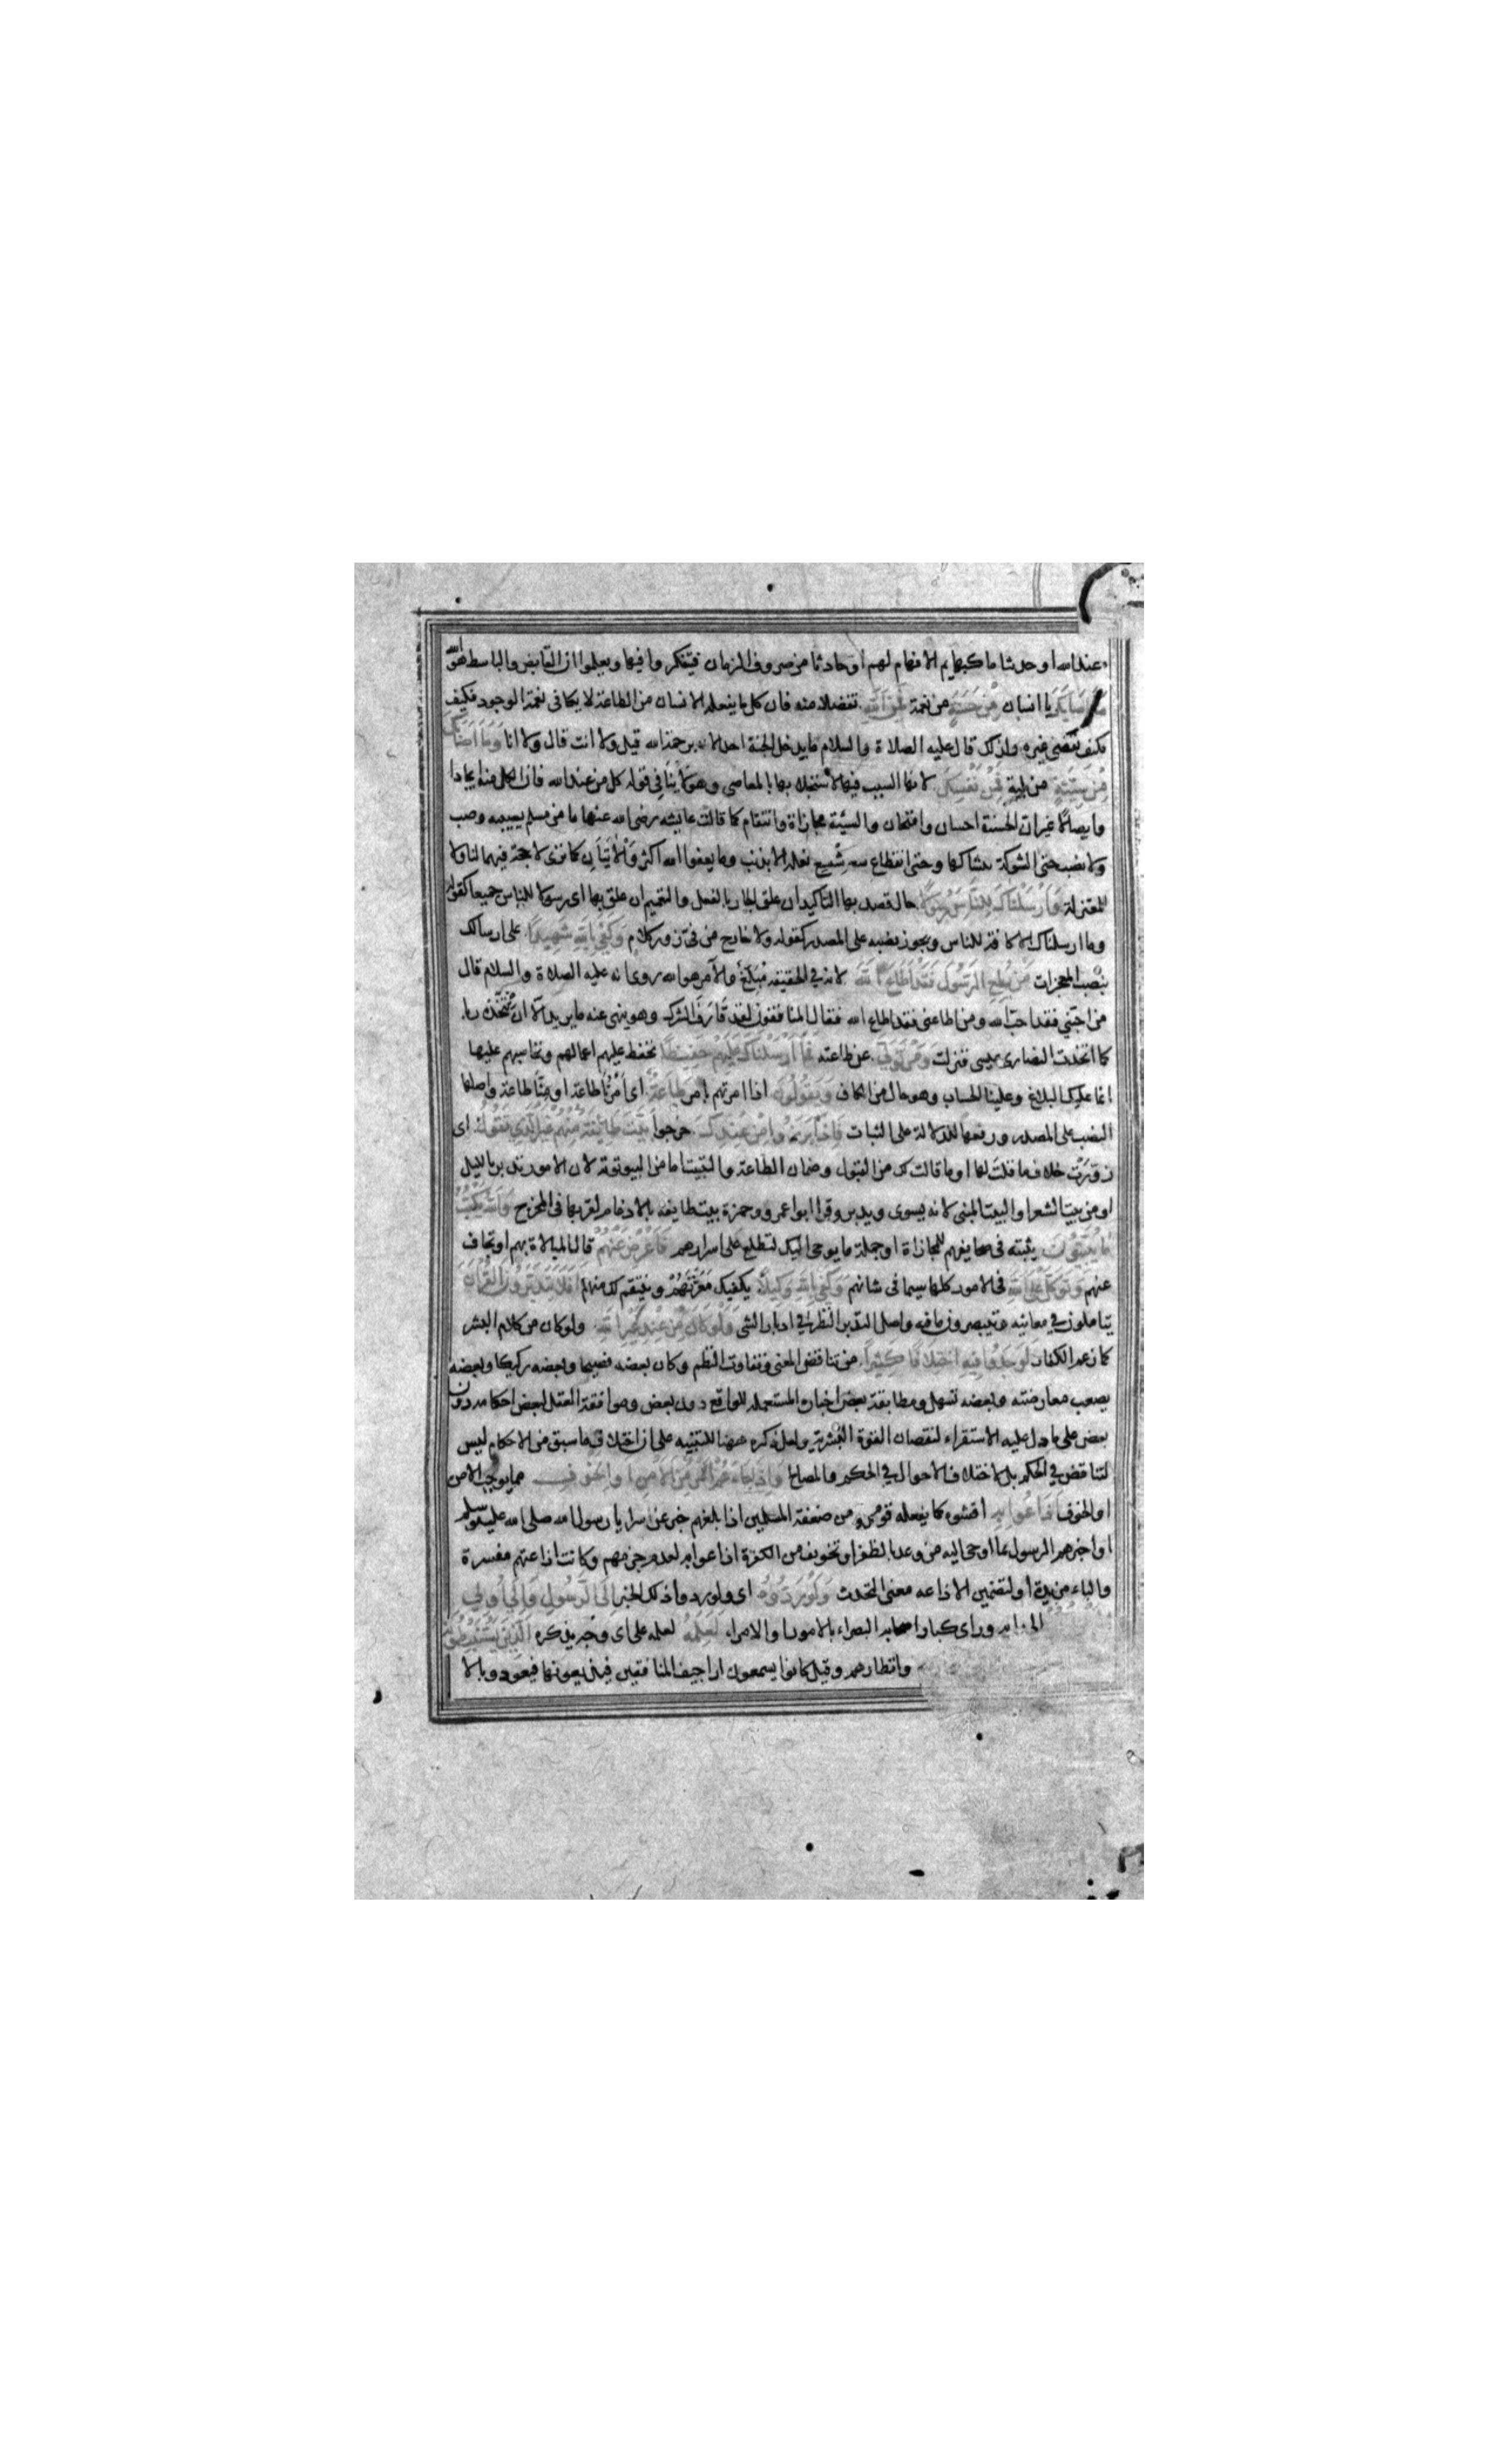 عند الله او حديثا ما كبهايم لا افهام لهم او حادثا من صروف الزمان فيتفكروا فيها ويعلموا ان القابض والباسط هو الله
ما اصابك يا انسان من حسنة من نعمة فمن الله تفضلا منه فان كل ما يفعله الانسان من الطاعة لا يكافى نعمة الوجود فكيف
فكيف يقتضى غيره ولذلك قال عليه الصلاة والسلام ما يدخل الجنة احد الا برحمة الله قيل ولا انت قال ولا انا وما اصابك
من سيئة من بلية فمن نفسك لانها السبب فيها لاستجلابها بالمعاصى وهو لا ينافى قوله كل من عند الله فان الكل منه ايجادا
وايصالا غير ان الحسنة احسان وامتحان والسيئة مجازاة وانتقام كما قالت عايشه رضى الله عنها ما من مسلم يصيبه وصب
ولا نصب حتى الشوكة يشاكها وحتى انقطاع شسع نعله الا بذنب وما يعفوا الله اكثر والايتان كما ترى لا حجة فيهما لنا ولا
للمعتزلة وارسلناك للناس رسولا حال قصد بها التاكيد ان علق الجار بالفعل والتعميم ان علق بها اى رسولا للناس جميعا كقوله
وما ارسلناك الا كافة للناس ويجوز نصبه على المصدر كقوله ولا خارج من فى زور كلام وكفى بالله شهيدا على ارسالك
بنصب المعجزات من يطع الرسول فقد اطاع الله لانه فى الحقيقة مبلغ والامر هو الله روى انه عليه الصلاة والسلام قال
من احبنى فقد احب الله ومن اطاعنى فقد اطاع الله فقال المنافقون لقد قارف الشرك وهو ينهى عنه ما يريد الا ان نتخذه ربا
كما اتخذت النصارى عيسى فنزلت ومن تولى عن طاعته فما ارسلناك عليهم حفيظا تحفظ عليهم اعمالهم وتحاسبهم عليها
انما عليك البلاغ وعلينا الحساب وهو حال من الكاف ويقولون اذا امرتهم بامر طاعة اى امرنا طاعة او منا طاعة واصلها
النصب على المصدر ورفعها للدلالة على الثبات فاذا برزوا من عندك خرجوا بيت طائفة منهم غير الذى تقول اى
زورت خلاف ما قلت لها او ما قالت لك من القبول وضمان الطاعة والتبييت اما من البيتوتة لان الامور تدبر بالليل
او من بيت الشعر او البيت المبنى لانه يسوى ويدبر وقرا ابو عمرو وحمزة بيت طايفة بالادغام لقربهما فى المخرج والله يكتب
ما يبيتون يثبته فى صحايفهم للمجازاة او جملة ما يوحى اليك لتطلع على اسرارهم فاعرض عنهم قال المبالاة بهم او تجاف
عنهم وتوكل على الله فى الامور كلها سيما فى شانهم وكفى بالله وكيلا يكفيك معرتهم وينتقم لك منهم افلا يتدبرون القران
يتاملون فى معانيه ويتبصرون ما فيه واصل التدبر النظر فى ادبار الشى ولو كان من عند غير الله ولو كان من كلام البشر
كما زعم الكفار لوجدوا فيه اختلافا كثيرا من تناقض المعنى وتفاوت النظم وكان بعضه فصيحا وبعضه ركيكا وبعضه
يصعب معارضته وبعضه تسهل ومطابقة بعض اخباره المستقبلة للواقع دون بعض وموافقة العقل لبعض احكامه دون
بعض على ما دل عليه الاستقراء لنقصان القوة البشرية ولعل ذكره ههنا للتنبيه على ان اختلاف ما سبق من الاحكام ليس
لتناقض فى الحكم بل لاختلاف الاحوال فى الحكم والمصالح واذا جاءهم امر من الامن او الخوف مما يوجب الامن
او الخوف اذاعوا به افشوه كما يفعله قوم من ضعفة المسلمين اذا بلغهم خبر عن سرايا رسول الله صلى الله عليه وسلم
او اخبرهم الرسول بما اوحى اليه من وعد بالظفر او تخويف من الكفرة اذاعوا به لعدم حزمهم وكانت اذاعتهم مفسرة
والباء مزيدة او لتضمين الاذاعه معنى التحدث ولو ردوه اى ولو ردوا ذلك الخبر الى الرسول والى اولى
الى رايه وراى كبار اصحابه البصراء بالامور او الامراء لعلمه لعلمه على اى وجه يذكره الذين يستنبطونه
وانظارهم وقيل كانوا يسمعون اراجيف المنافقين فيذيعونها فيعود وبالا